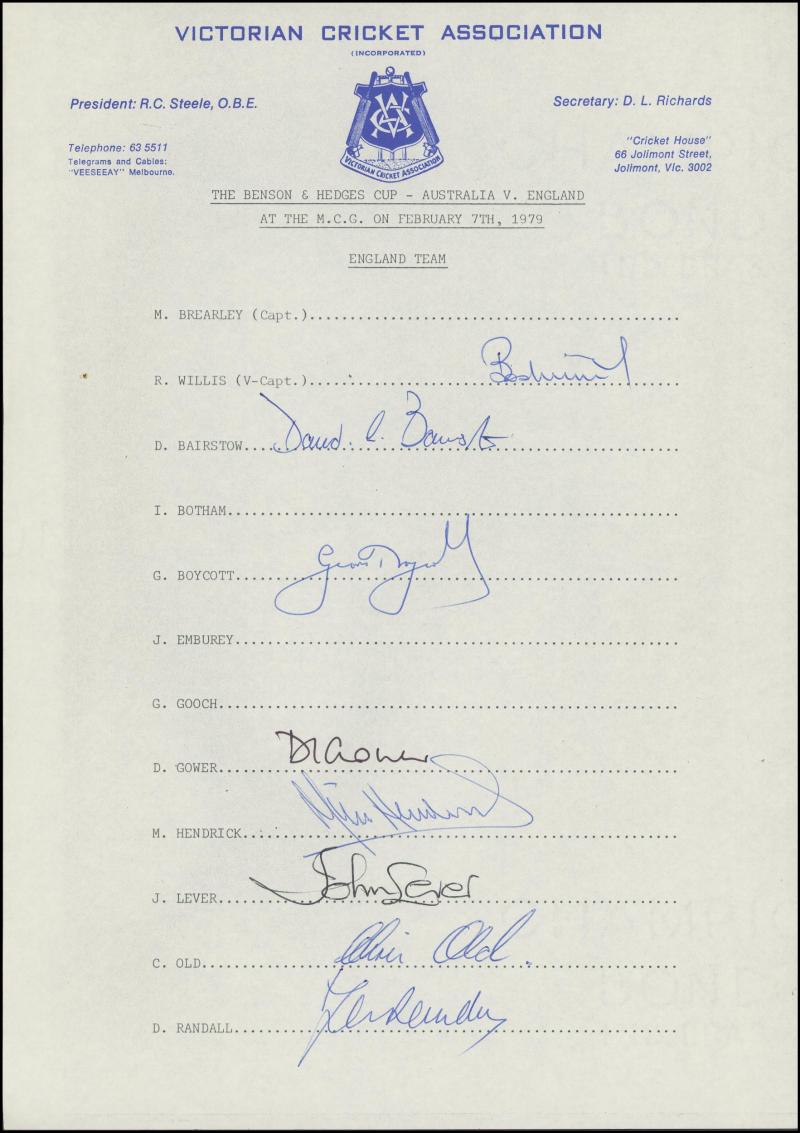 VICTORIAN CRICKET ASSOCIATION
(INCORPORATED)
President: R.C. Steele, O.B.E.
Secretary: D. L. Richards
Telephone: 63 5511
Telegrams and Cables:
"VEESEEAY" Melbourne.
"Cricket House"
66 Jolimont Street,
Jolimont, Vic. 3002
VCA
VICTORIAN CRICKET ASSOCIATION
THE BENSON & HEDGES CUP - AUSTRALIA V. ENGLAND
AT THE M.C.G. ON FEBRUARY 7TH, 1979
ENGLAND TEAM
M. BREARLEY (Capt.)
R. WILLIS (V-Capt.)
D. BAIRSTOW David. L. Bairstow
I. BOTHAM
G. BOYCOTT Geoff Boycott
J. EMBUREY
G. GOOCH
D. GOWER DI Gower
M. HENDRICK Mike Hendrick
J. LEVER John Lever
C. OLD Chris Old.
D. RANDALL